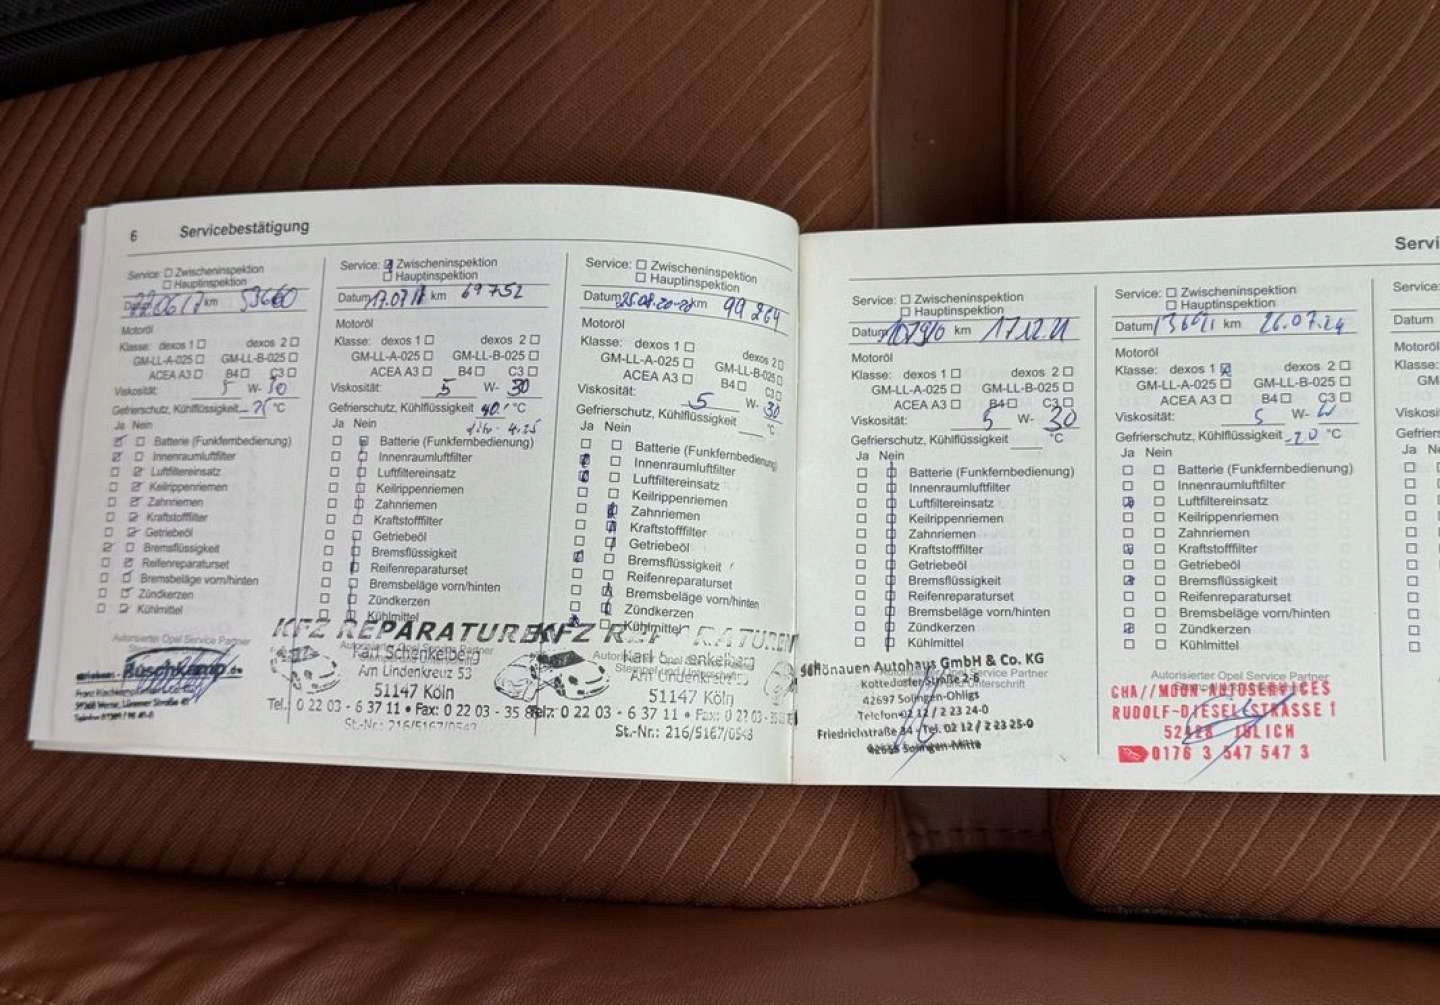 6 Servicebestätigung
Service: ☐ Zwischeninspektion
☐ Hauptinspektion
km 53660
Motoröl
Klasse: dexos 1 ☐ dexos 2 ☐
GM-LL-A-025 ☐ GM-LL-B-025 ☐
ACEA A3 ☐ B4 ☐ C3 ☐
Viskosität: 5 W-
Gefrierschutz, Kühlflüssigkeit °C
Ja Nein
Batterie (Funkfernbedienung)
Innenraumluftfilter
Luftfiltereinsatz
Keilrippenriemen
Zahnriemen
Kraftstofffilter
Getriebeöl
Bremsflüssigkeit
Reifenreparaturset
Bremsbeläge vorn/hinten
Zündkerzen
Kühlmittel
Autorisierter Opel Service Partner
Buschkamp
Service: Zwischeninspektion
☐ Hauptinspektion
Datum km 69752
Motoröl
Klasse: dexos 1 ☐ dexos 2 ☐
GM-LL-A-025 ☐ GM-LL-B-025 ☐
ACEA A3 ☐ B4 ☐ C3 ☐
Viskosität: 5 W- 30
Gefrierschutz, Kühlflüssigkeit °C
4.25
Ja Nein
Batterie (Funkfernbedienung)
Innenraumluftfilter
Luftfiltereinsatz
Keilrippenriemen
Zahnriemen
Kraftstofffilter
Getriebeöl
Bremsflüssigkeit
Reifenreparaturset
Bremsbeläge vorn/hinten
Zündkerzen
Kühlmittel
KFZ REPARATUREN
Karl Schenkelberg
Am Lindenkreuz 53
51147 Köln
Tel. 0 22 03 - 6 37 11 • Fax: 0 22 03 - 35 8
St.-Nr.: 216/5167/0543
Service: ☐ Zwischeninspektion
☐ Hauptinspektion
Datum km 99264
Motoröl
Klasse: dexos 1 ☐ dexos 2 ☐
GM-LL-A-025 ☐ GM-LL-B-025 ☐
ACEA A3 ☐ B4 ☐ C3 ☐
Viskosität: 5 W- 30
Gefrierschutz, Kühlflüssigkeit °C
Ja Nein
Batterie (Funkfernbedienung)
Innenraumluftfilter
Luftfiltereinsatz
Keilrippenriemen
Zahnriemen
Kraftstofffilter
Getriebeöl
Bremsflüssigkeit
Reifenreparaturset
Bremsbeläge vorn/hinten
Zündkerzen
Kühlmittel
KFZ REPARATUREN
Karl Schenkelberg
Am Lindenkreuz 53
51147 Köln
Tel. 0 22 03 - 6 37 11 • Fax: 0 22 03 - 35
St.-Nr.: 216/5167/0543
Servi
Service: ☐ Zwischeninspektion
☐ Hauptinspektion
Datum km 17.12.21
Motoröl
Klasse: dexos 1 ☐ dexos 2 ☐
GM-LL-A-025 ☐ GM-LL-B-025 ☐
ACEA A3 ☐ B4 ☐ C3 ☐
Viskosität: 5 W- 30
Gefrierschutz, Kühlflüssigkeit °C
Ja Nein
Batterie (Funkfernbedienung)
Innenraumluftfilter
Luftfiltereinsatz
Keilrippenriemen
Zahnriemen
Kraftstofffilter
Getriebeöl
Bremsflüssigkeit
Reifenreparaturset
Bremsbeläge vorn/hinten
Zündkerzen
Kühlmittel
Schönauen Autohaus GmbH & Co. KG
Kottedorfer Straße 2-6
42697 Solingen-Ohligs
Telefon 02 12 / 2 23 24-0
Friedrichstraße 34 - Tel. 02 12 / 2 23 25-0
42655 Solingen-Mitte
Service: ☐ Zwischeninspektion
☐ Hauptinspektion
Datum km 26.07.24
Motoröl
Klasse: dexos 1 ☒ dexos 2 ☐
GM-LL-A-025 ☐ GM-LL-B-025 ☐
ACEA A3 ☐ B4 ☐ C3 ☐
Viskosität: 5 W-
Gefrierschutz, Kühlflüssigkeit -20 °C
Ja Nein
Batterie (Funkfernbedienung)
Innenraumluftfilter
Luftfiltereinsatz
Keilrippenriemen
Zahnriemen
Kraftstofffilter
Getriebeöl
Bremsflüssigkeit
Reifenreparaturset
Bremsbeläge vorn/hinten
Zündkerzen
Kühlmittel
Autorisierter Opel Service Partner
CHA//MOUN-AUTOSERVICES
RUDOLF-DIESEL-STRASSE 1
52428 JÜLICH
0176 3 547 547 3
Service:
Datum
Motoröl
Klasse:
Viskosi
Gefriers
Ja Ne